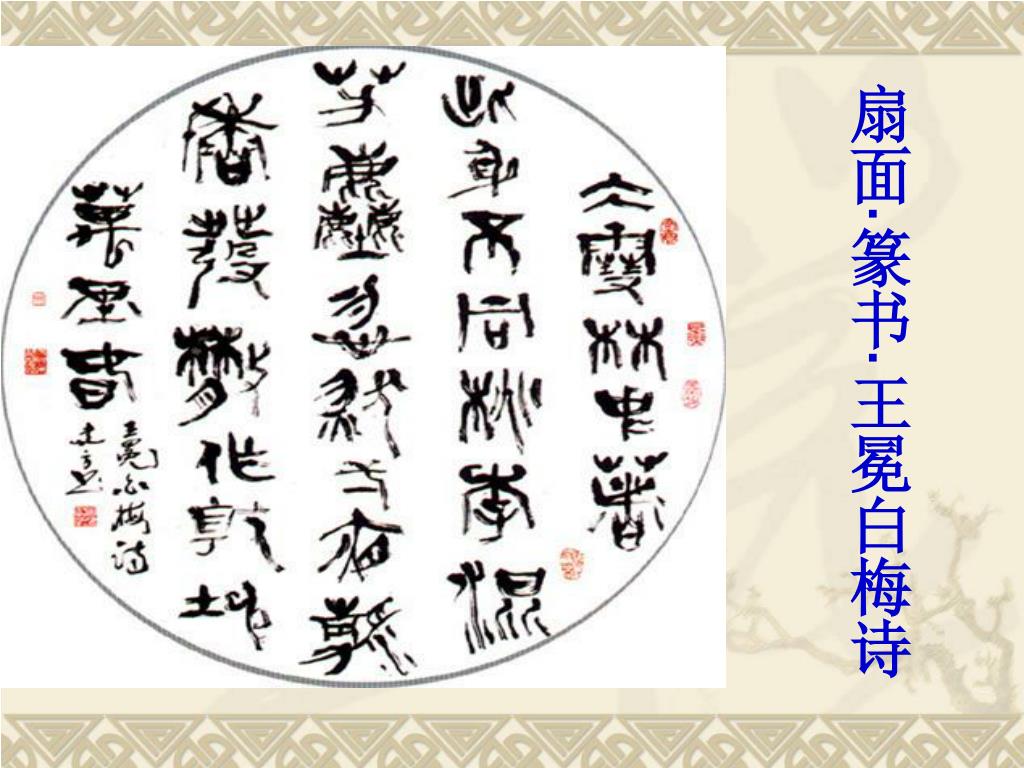 扇面·篆书·王冕白梅诗
仌雪林中著
此身不同桃李混
芳塵忽然一夜清
香發散作乾坤
萬里春
王冕白梅诗